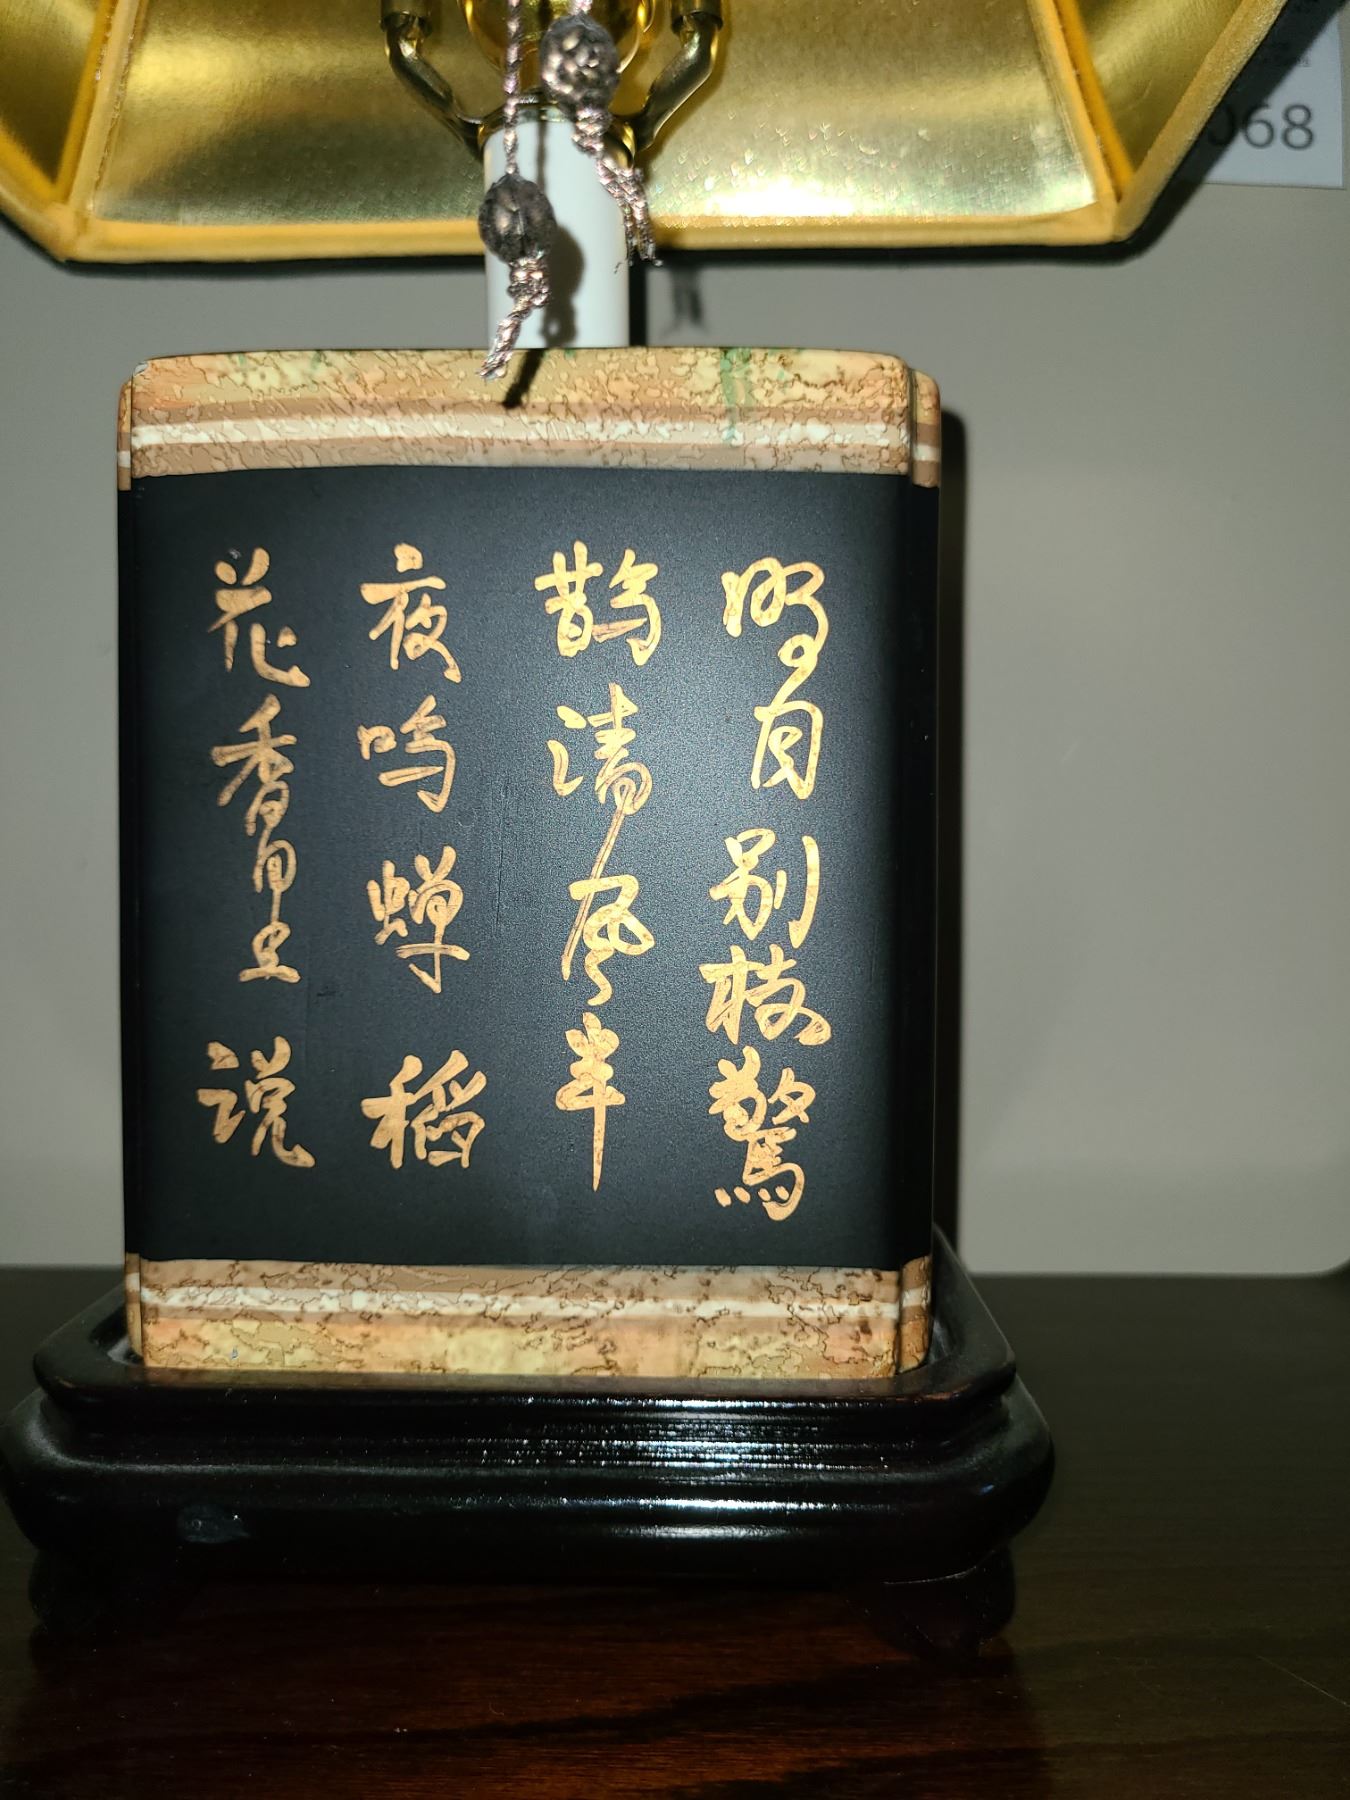 068
明月别枝驚
鹊清风半
夜鸣蝉稻
花香里说